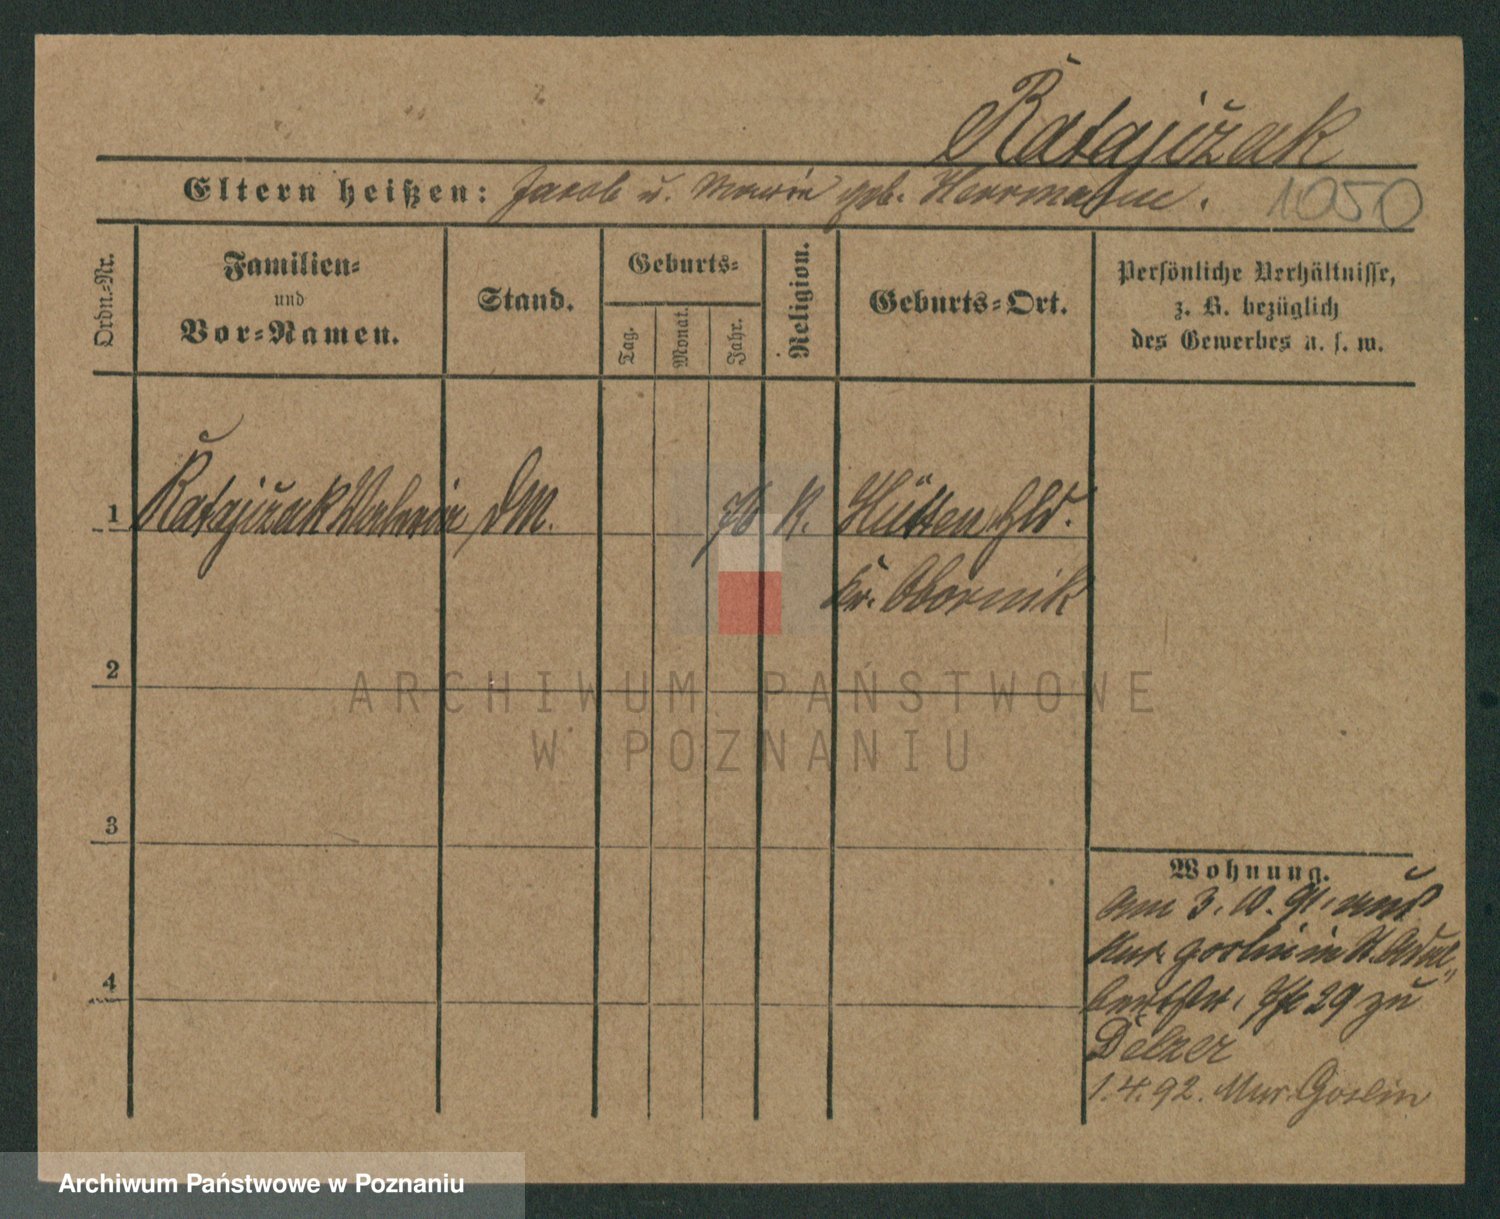 Ratajczak
Eltern heißen: Jacob u. Marie geb. Herrmann. 1050
Ordn.-Nr.
Familien-
und
Vor-Namen.
Stand.
Geburts-
Tag.
Monat.
Jahr.
Religion.
Geburts-Ort.
Persönliche Verhältnisse,
z. B. bezüglich
des Gewerbes u. s. w.
1 Ratajczak Valerie DM. 76 K. Hütten Hld.
Kr. Obornik
2
3
4
Wohnung.
Am 3. 10. 91. aus
Mur. Goslin in St. Adal-
bertstr. 29 zu
Delzer
1.4.92. Mur. Goslin
ARCHIWUM PAŃSTWOWE
W POZNANIU
Archiwum Państwowe w Poznaniu